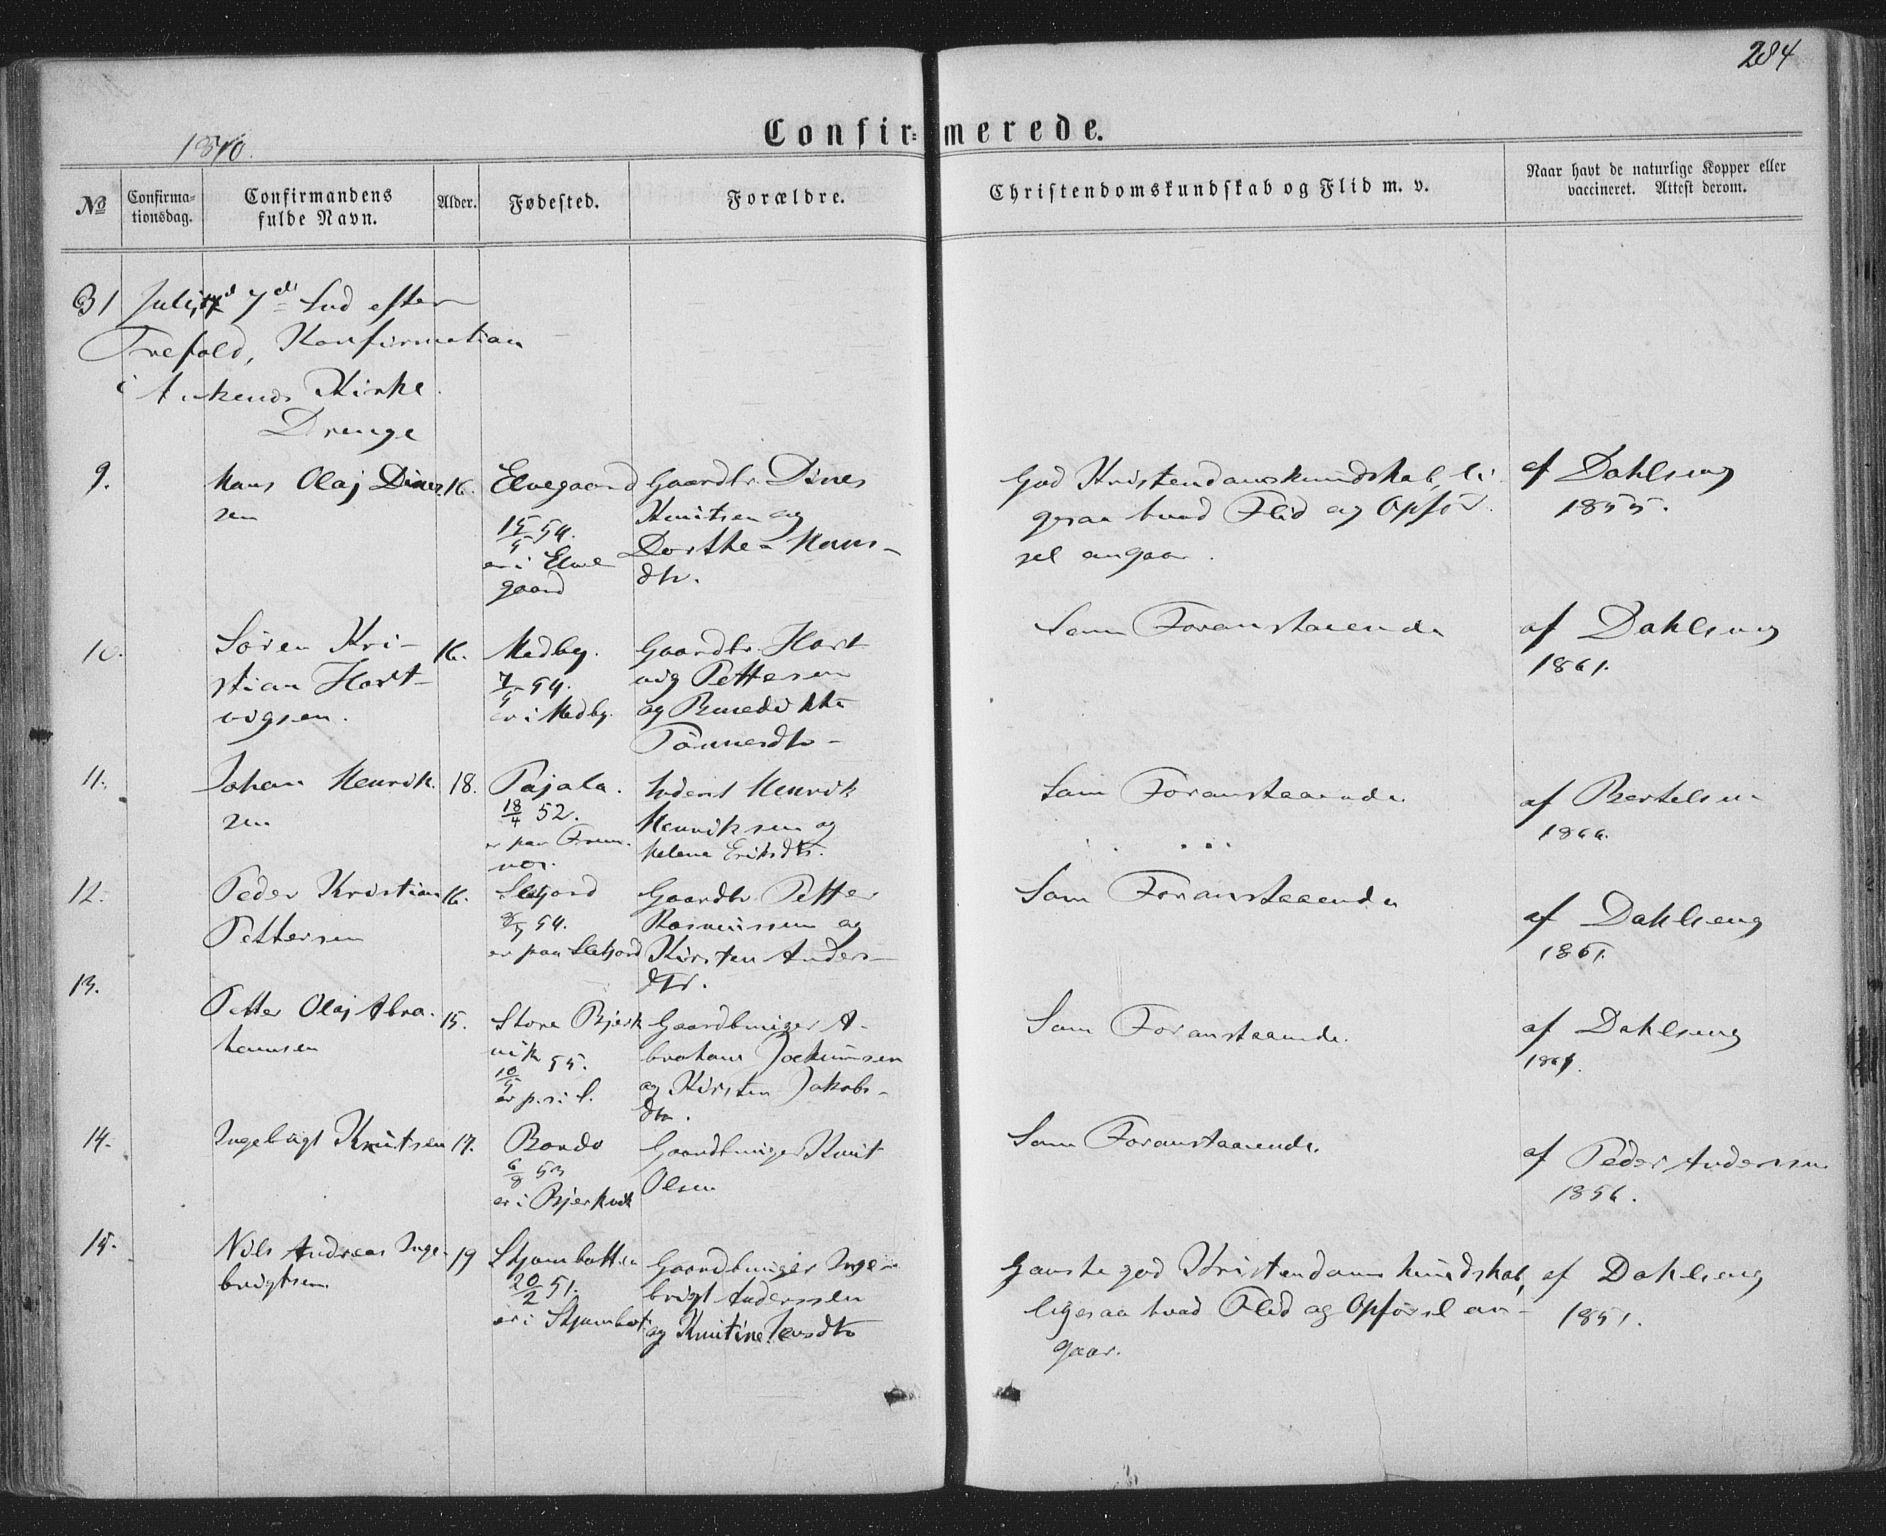 284
1870.
Confir= merede.
No
Confirma-
tionsdag.
Confirmandens
fulde Navn.
Alder.
Fødested.
Forældre.
Christendomskundskab og Flid m. v.
Naar havt de naturlige Kopper eller
vaccineret. Attest derom.
31 Juli, 7de Sød efter
Trefold, Konfirmation
i Ankenes Kirke.
Drenge
9.
Hans Olaj Dines
sen
16.
Elvegaard
15/5 54.
er i Elve
gaard
Gaardbr. Dines
Knutsen og
Dorthea Hans-
dtr.
God Kristendomskundskab, li
gesaa hvad Flid og Opfør
sel angaar.
af Dahlseng
1855.
10.
Sören Kri-
stian Hart-
vigsen.
16.
Medby.
7/5 54.
er i Medby.
Gaardbr. Hart
vig Pettesen
og Benedikte
Tönnesdtr
Som Foranstaaende
af Dahlseng
1861.
11.
Johan Henrik
sen
18.
Pajala.
18/4 52.
er paa From.
nes.
Inderst Henrik
Henriksen og
Helena Eriksdtr.
Som Foranstaaende
af Bertelsen
1866.
12.
Peder Kristian
Pettersen
16.
54.
er paa
Gaardbr. Petter
Rasmussen og
Kirsten Anders-
dtr.
Som Foranstaaende
af Dahlseng
1861.
13.
Petter Olaj Abra-
hamsen
15.
Store Bjerk
vik
10/5 55.
er p. s. i. S.
Gaardbruger A-
braham Jochumsen
og Kirsten Jakobs-
dtr.
Som Foranstaaende.
af Dahlseng
1861.
14.
Ingebrigt Knutsen
17.
Bardo
6/8 53
er i Bjerkvik
Gaardbruger Knut
Olsen
Som Foranstaaende.
af Peder Anderssen
1856.
15.
Nils Andreas Inge-
brigtsen
19
Skjombotten
20/2 51.
er i Skjombot
Gaardbruger Inge-
brigt Anderssen
og Knutine
Ganske god Kristendomskundskab,
ligesaa hvad Flid og Opförsel an-
gaar.
af Dahlseng
1851.